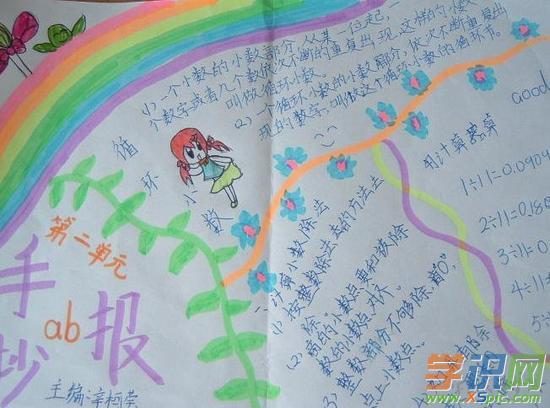 (1) 一个小数的小数部分,从某一位起,一
个数字或者几个数字依次不断的重复出现,这样的小数
叫做循环小数。
(2) 一个循环小数的小数部分,依次不断重复出
现的数字,叫做这个循环小数的循环节。
循环小数
good
用计算器算
1÷11=0.0909
2÷11=0.18
3÷11=0
4÷11=
5÷
计算小数除法
(1) 按整数除法的方法去
除
商的小数点要和被除
数的小数点对齐。
(2) 整数部分不够除,商0,
点上小数点。
第二单元
手抄报
ab
主编:辛柯莹
学识网
www.xspic.com